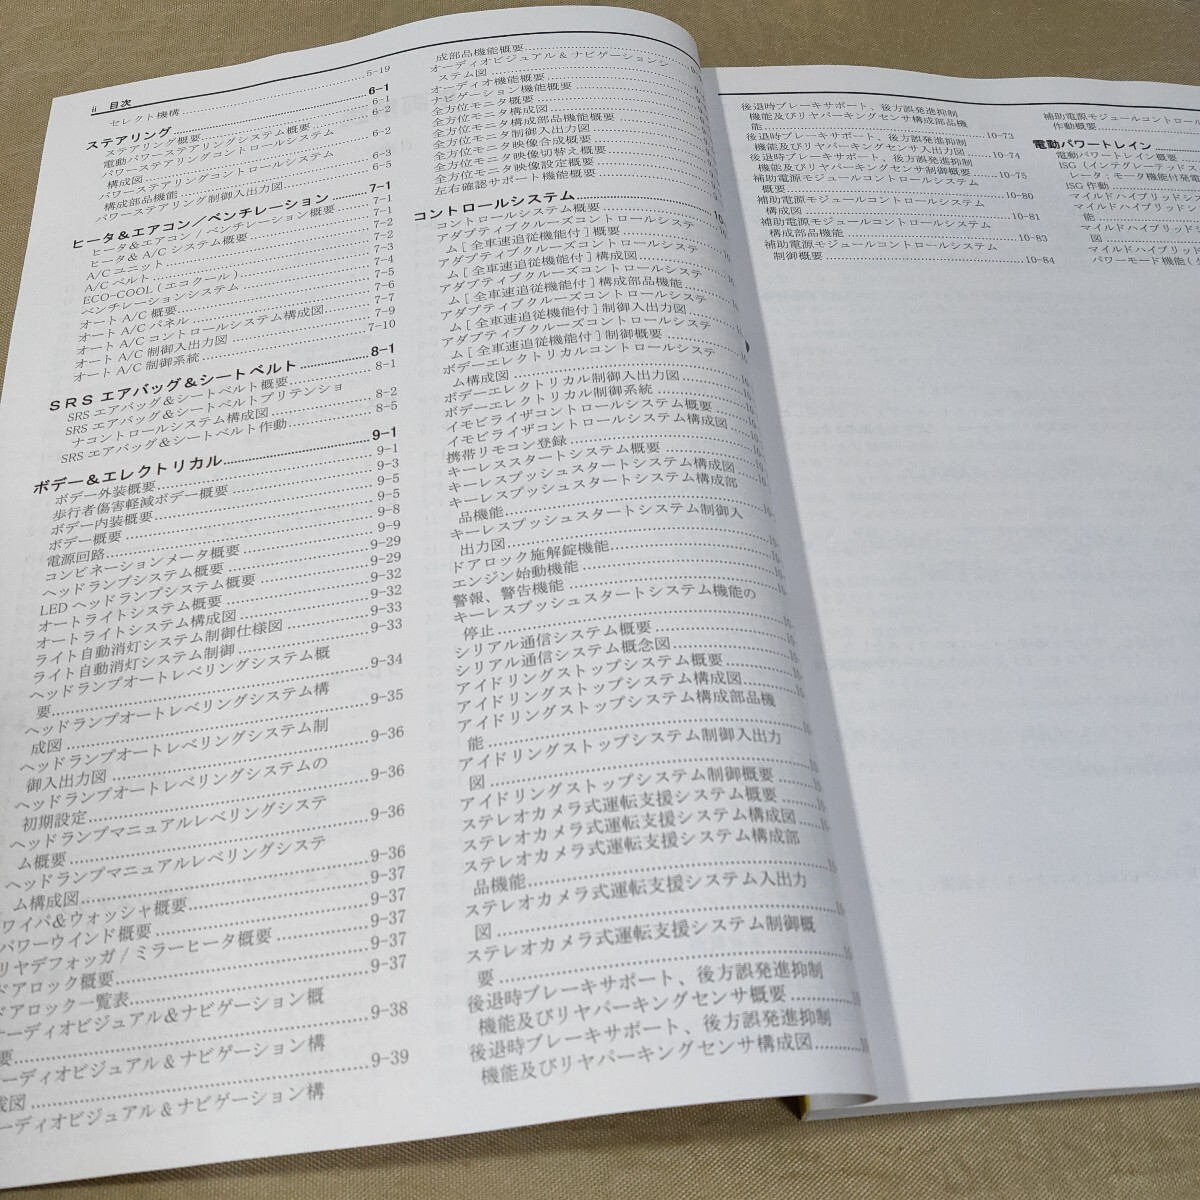 ii 目次
セレクト機構 5-19
ステアリング 6-1
ステアリング概要 6-1
電動パワーステアリングシステム概要 6-2
パワーステアリングコントロールシステム
構成図 6-2
パワーステアリングコントロールシステム
構成部品機能 6-3
パワーステアリング制御入出力図 6-5
ヒータ&エアコン/ベンチレーション 7-1
ヒータ&エアコン/ベンチレーション概要 7-1
ヒータ& A/C システム概要 7-2
A/C ユニット 7-2
A/C ベルト 7-3
ECO-COOL(エコクール) 7-4
ベンチレーションシステム 7-5
オート A/C 概要 7-6
オート A/C パネル 7-7
オート A/C コントロールシステム構成図 7-9
オート A/C 制御入出力図 7-10
オート A/C 制御系統
SRS エアバッグ&シートベルト 8-1
SRS エアバッグ&シートベルト概要 8-1
SRS エアバッグ&シートベルトプリテンショ
ナコントロールシステム構成図 8-2
SRS エアバッグ&シートベルト作動 8-5
ボデー&エレクトリカル 9-1
ボデー外装概要 9-1
歩行者傷害軽減ボデー概要 9-3
ボデー内装概要 9-5
ボデー概要 9-5
電源回路 9-8
コンビネーションメータ概要 9-9
ヘッドランプシステム概要 9-29
LED ヘッドランプシステム概要 9-29
オートライトシステム概要 9-32
オートライトシステム構成図 9-32
ライト自動消灯システム制御仕様図 9-33
ライト自動消灯システム制御 9-33
ヘッドランプオートレベリングシステム概
要 9-34
ヘッドランプオートレベリングシステム構
成図 9-35
ヘッドランプオートレベリングシステム制
御入出力図 9-36
ヘッドランプオートレベリングシステムの
初期設定 9-36
ヘッドランプマニュアルレベリングシステ
ム概要 9-36
ヘッドランプマニュアルレベリングシステ
ム構成図 9-36
ワイパ&ウォッシャ概要 9-37
パワーウインド概要 9-37
リヤデフォッガ/ミラーヒータ概要 9-37
ドアロック概要 9-37
ドアロック一覧表 9-37
オーディオビジュアル&ナビゲーション概
要 9-38
オーディオビジュアル&ナビゲーション構
成図 9-39
オーディオビジュアル&ナビゲーション構
成部品機能概要
オーディオビジュアル&ナビゲーションシ
ステム図
オーディオ機能概要
ナビゲーション機能概要
全方位モニタ概要
全方位モニタ構成図
全方位モニタ構成部品機能概要
全方位モニタ制御入出力図
全方位モニタ映像合成概要
全方位モニタ映像切替え概要
全方位モニタ設定概要
左右確認サポート機能概要
コントロールシステム
コントロールシステム概要
アダプティブクルーズコントロールシステ
ム[全車速追従機能付]概要
アダプティブクルーズコントロールシステ
ム[全車速追従機能付]構成図
アダプティブクルーズコントロールシステ
ム[全車速追従機能付]構成部品機能
アダプティブクルーズコントロールシステ
ム[全車速追従機能付]制御入出力図
アダプティブクルーズコントロールシステ
ム[全車速追従機能付]制御概要
ボデーエレクトリカルコントロールシステ
ム構成図
ボデーエレクトリカル制御入出力図
ボデーエレクトリカル制御系統
イモビライザコントロールシステム概要
イモビライザコントロールシステム構成図
携帯リモコン登録
キーレススタートシステム概要
キーレスプッシュスタートシステム構成図
キーレスプッシュスタートシステム構成部
品機能
キーレスプッシュスタートシステム制御入
出力図
ドアロック施解錠機能
エンジン始動機能
警報、警告機能
キーレスプッシュスタートシステム機能の
停止
シリアル通信システム概要
シリアル通信システム概念図
アイドリングストップシステム概要
アイドリングストップシステム構成図
アイドリングストップシステム構成部品機
能
アイドリングストップシステム制御入出力
図
アイドリングストップシステム制御概要
ステレオカメラ式運転支援システム概要
ステレオカメラ式運転支援システム構成図
ステレオカメラ式運転支援システム構成部
品機能
ステレオカメラ式運転支援システム入出力
図
ステレオカメラ式運転支援システム制御概
要
後退時ブレーキサポート、後方誤発進抑制
機能及びリヤパーキングセンサ概要
後退時ブレーキサポート、後方誤発進抑制
機能及びリヤパーキングセンサ構成図
後退時ブレーキサポート、後方誤発進抑制
機能及びリヤパーキングセンサ構成部品機
能 10-73
後退時ブレーキサポート、後方誤発進抑制
機能及びリヤパーキングセンサ入出力図 10-74
後退時ブレーキサポート、後方誤発進抑制
機能及びリヤパーキングセンサ制御概要 10-75
補助電源モジュールコントロールシステム
概要 10-80
補助電源モジュールコントロールシステム
構成図 10-81
補助電源モジュールコントロールシステム
構成部品機能 10-83
補助電源モジュールコントロールシステム
制御概要 10-84
補助電源モジュールコントロール
作動概要
電動パワートレイン
電動パワートレイン概要
ISG(インテグレーテッドス
レータ:モータ機能付発電
ISG 作動
マイルドハイブリッドシス
マイルドハイブリッドシ
能
マイルドハイブリッド
図
マイルドハイブリッド
パワーモード機能(